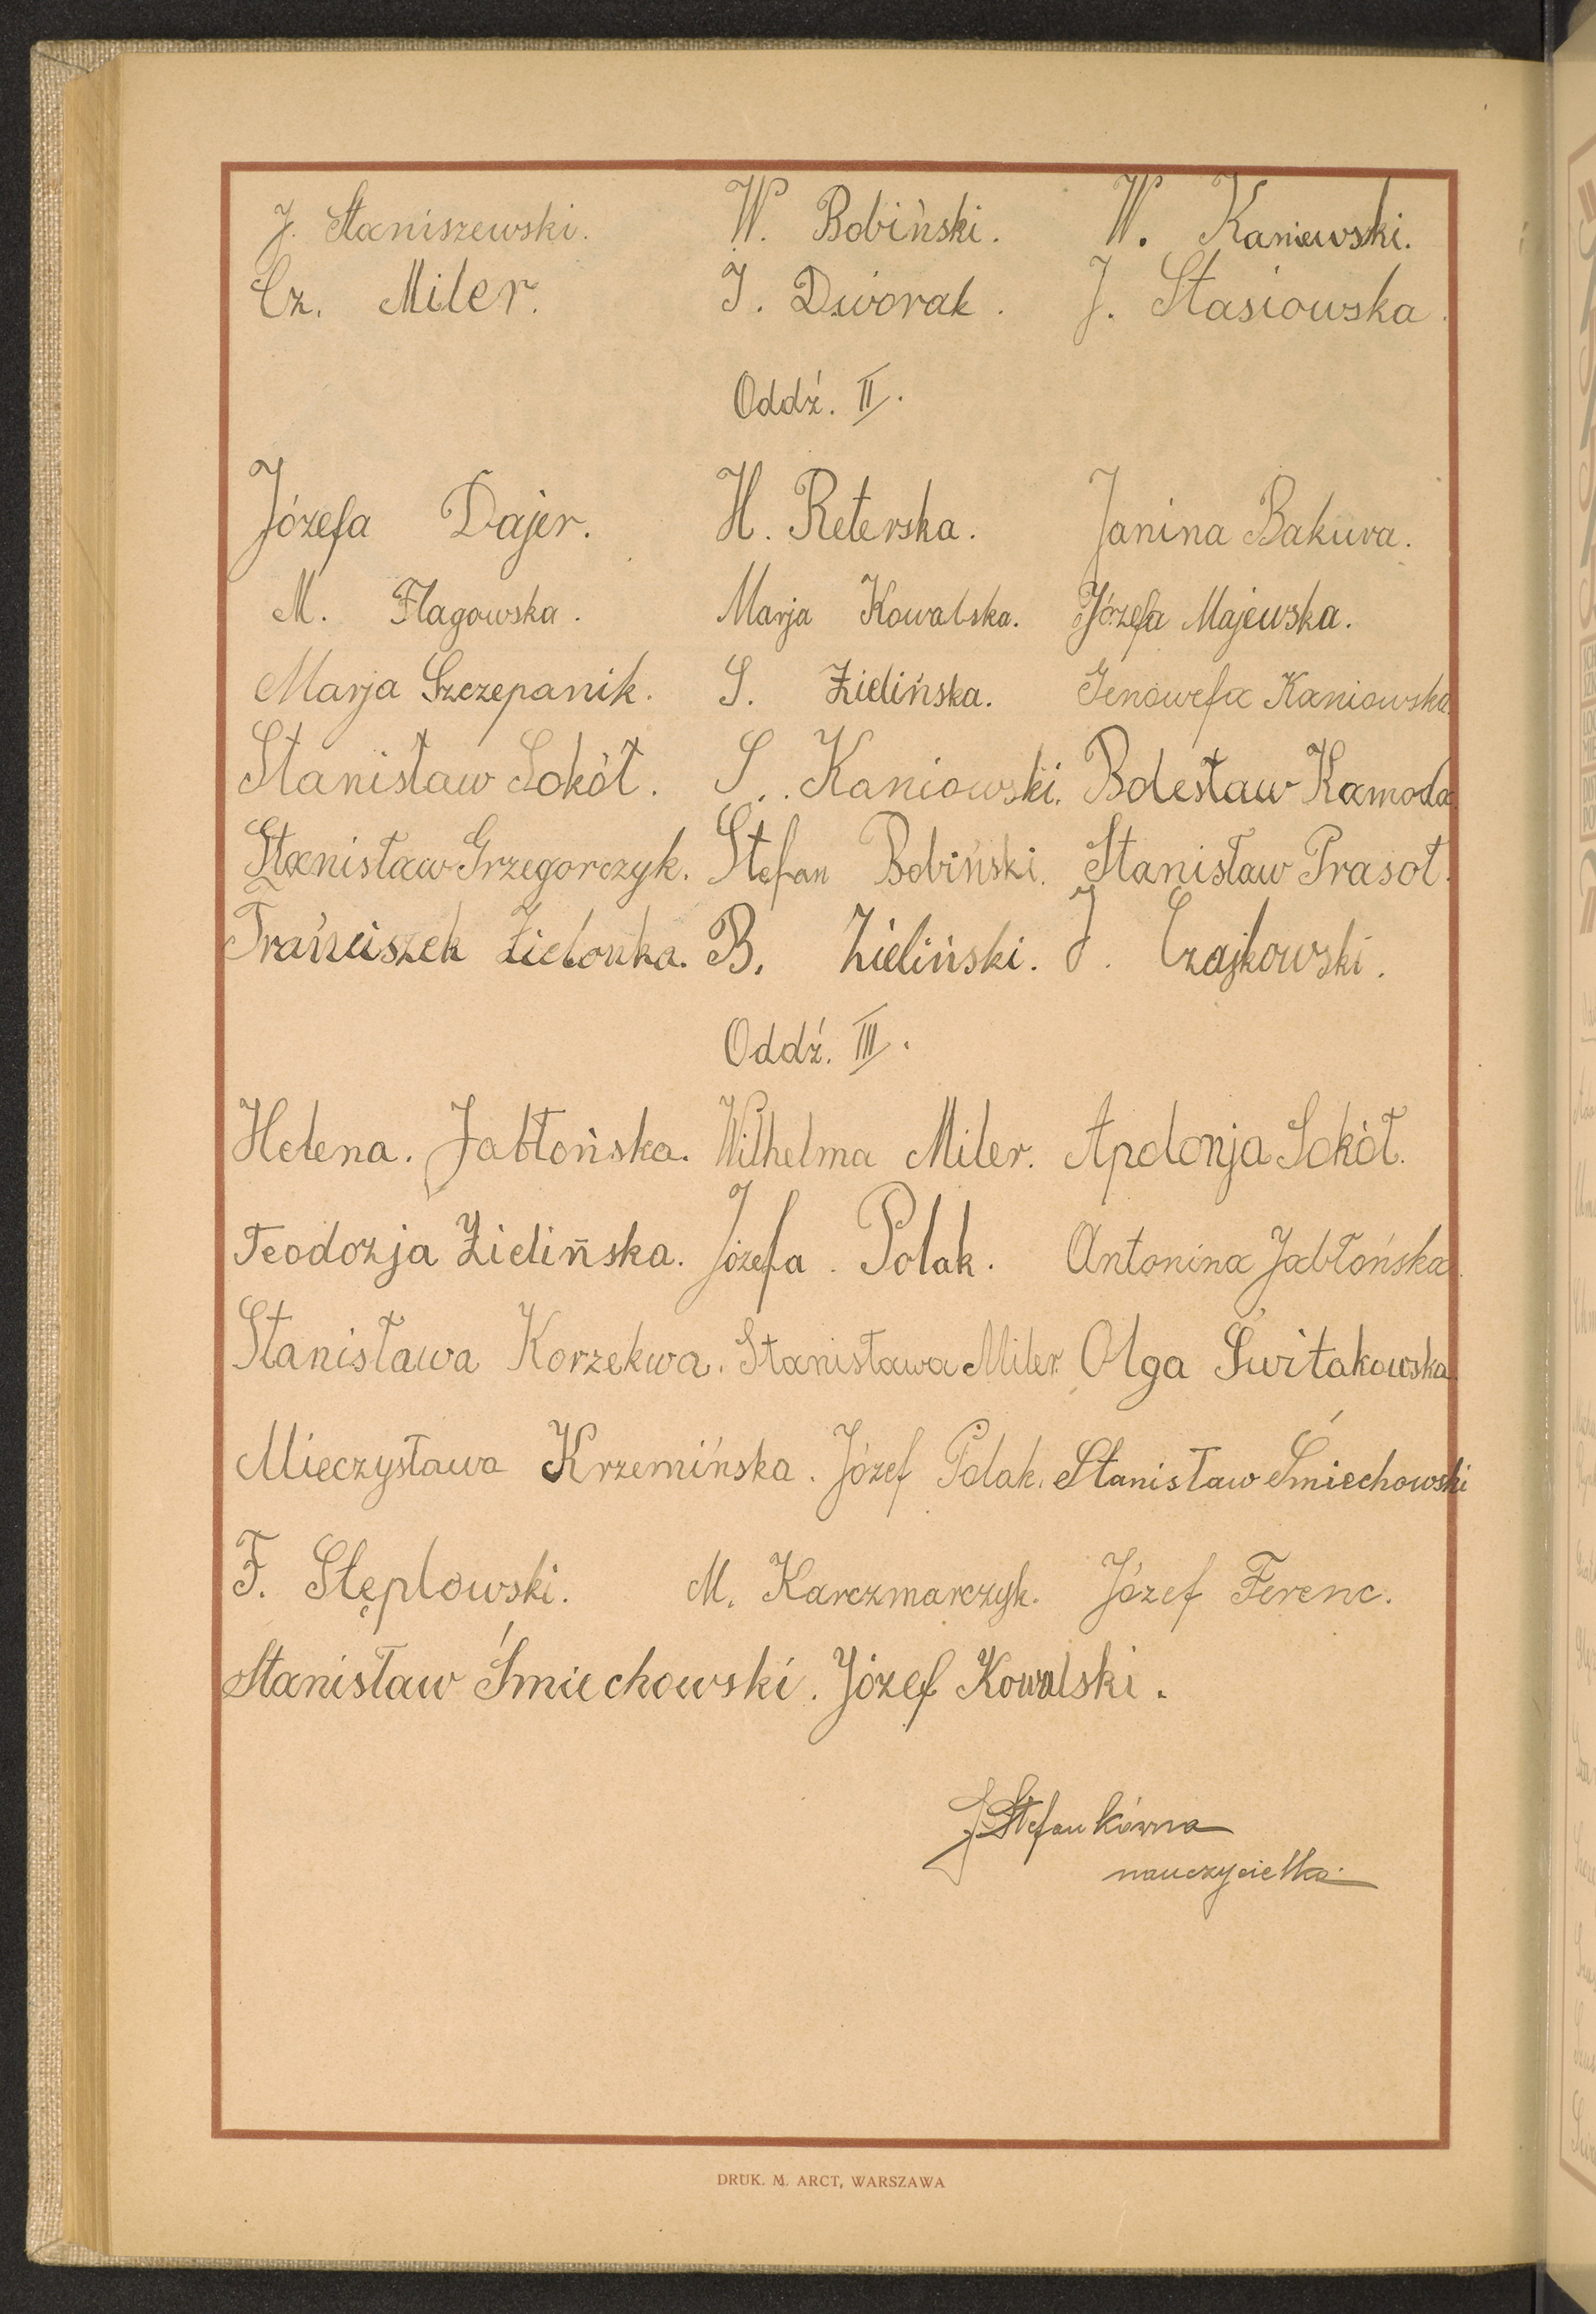 J. Staniszewski. W. Bobiński. W. Kaniewski.
Cz. Miler. J. Dworak. J. Stasiowska.
Oddź. II.
Józefa Dajer. H. Reterska. Janina Bakura.
M. Flagowska. Marja Kowalska. Józefa Majewska.
Marja Szczepanik. S. Zielińska. Genowefa Kaniowska.
Stanisław Sokół. S. Kaniowski. Bolesław Kamoda.
Stanisław Grzegorczyk. Stefan Bobiński. Stanisław Prasoł.
Frańciszek Zielonka. B. Zieliński. J. Czajkowski.
Oddź. III.
Helena. Jabłońska. Wilhelma Miler. Apolonja Sokół.
Teodozja Zielińska. Józefa. Polak. Antonina Jabłońska.
Stanisława Korzekwa. Stanisława Miler. Olga Świtakowska.
Mieczysława Krzemińska. Józef Polak. Stanisław Śmiechowski
F. Stęplowski. M. Karczmarczyk. Józef Ferenc.
Stanisław Śmiechowski. Józef Kowalski.
J Stefankówna
nauczycielka.
DRUK. M. ARCT, WARSZAWA